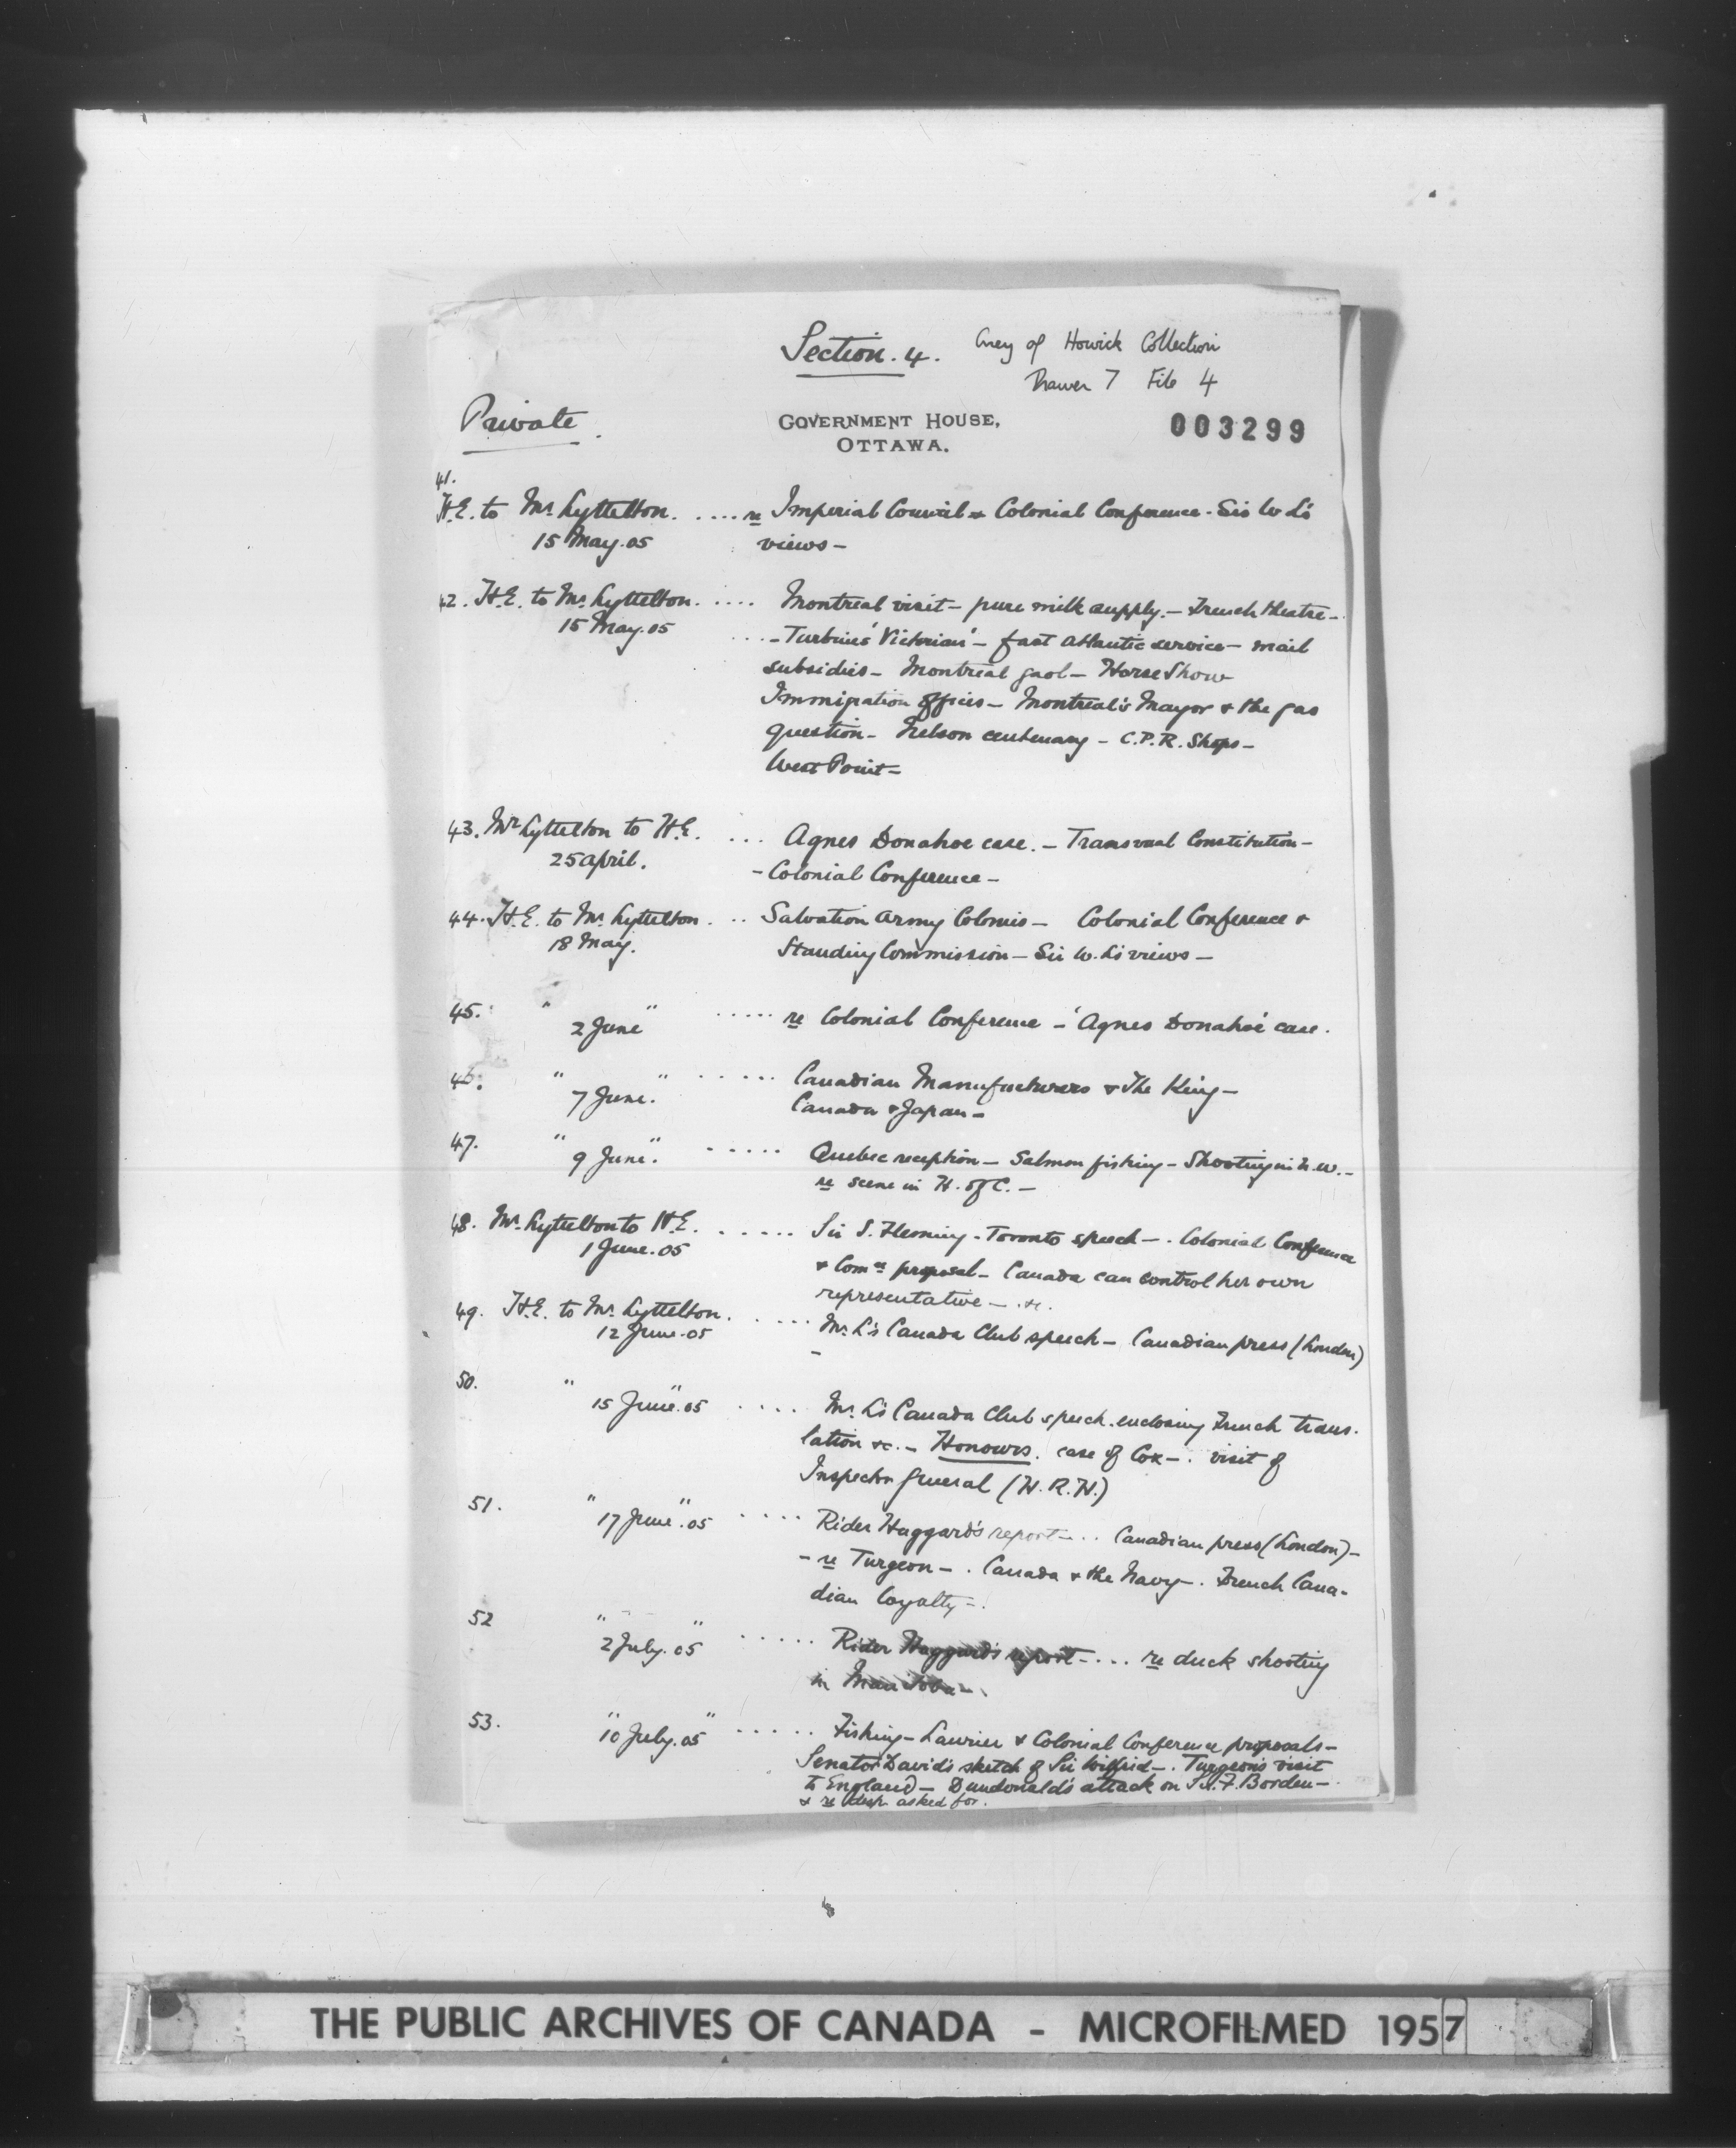 Section. 4.
Grey of Howick Collection
Drawer 7 File 4
Private.
GOVERNMENT HOUSE,
OTTAWA.
003299
41.
H.E. to Mr. Lyttelton. .... re Imperial Council & Colonial Conference - Sir W L's
15 May. 05 views -
42. H.E. to Mr. Lyttelton. .... Montreal visit - pure milk supply. - French theatre -
15 May. 05 ... - Turbine 'Victorian' - fast Atlantic service - mail
subsidies - Montreal gaol - Horse Show
Immigration offices - Montreal's Mayor & the gas
question - Nelson centenary - C.P.R. Shops -
West Point -
43. Mr Lyttelton to H.E. ... Agnes Donahoe case. - Transvaal Constitution -
25 April. - Colonial Conference -
44. H.E. to Mr. Lyttelton . .. Salvation Army Colonies - Colonial Conference &
18 May. Standing Commission - Sir W. L's views -
45. " " ..... re Colonial Conference - 'Agnes Donahoe' case.
2 June
46. " " ...... Canadian Manufacturers & The King -
7 June. Canada & Japan -
47. " " ..... Quebec reception - Salmon fishing - Shooting in N.W. -
9 June. re scene in H. of C. -
48. Mr. Lyttelton to H.E. ...... Sir S. Fleming - Toronto speech - . Colonial Conference
1 June. 05 & Comn proposal - Canada can control her own
representative - . &c.
49. H.E. to Mr. Lyttelton. .... Mr. L's Canada Club speech - Canadian press (London)
12 June. 05 -
50. " " .... Mr. L's Canada Club speech. enclosing French trans-
15 June. 05 lation &c. - Honours. case of Cox - . visit of
Inspector General (H.R.H.)
51. " " .... Rider Haggard's report - .. Canadian press (London) -
17 June. 05 - re Turgeon - . Canada & the Navy - . French Cana-
dian loyalty - .
52 " " ..... Rider Haggard's report - ... re duck shooting
2 July. 05 in Manitoba - .
53. " " ..... Fishing - Laurier & Colonial Conference proposals -
10 July. 05 Senator David's sketch of Sir Wilfrid - . Turgeon's visit
to England - Dundonald's attack on Sir F. Borden -
& re desp. asked for.
THE PUBLIC ARCHIVES OF CANADA - MICROFILMED 1957